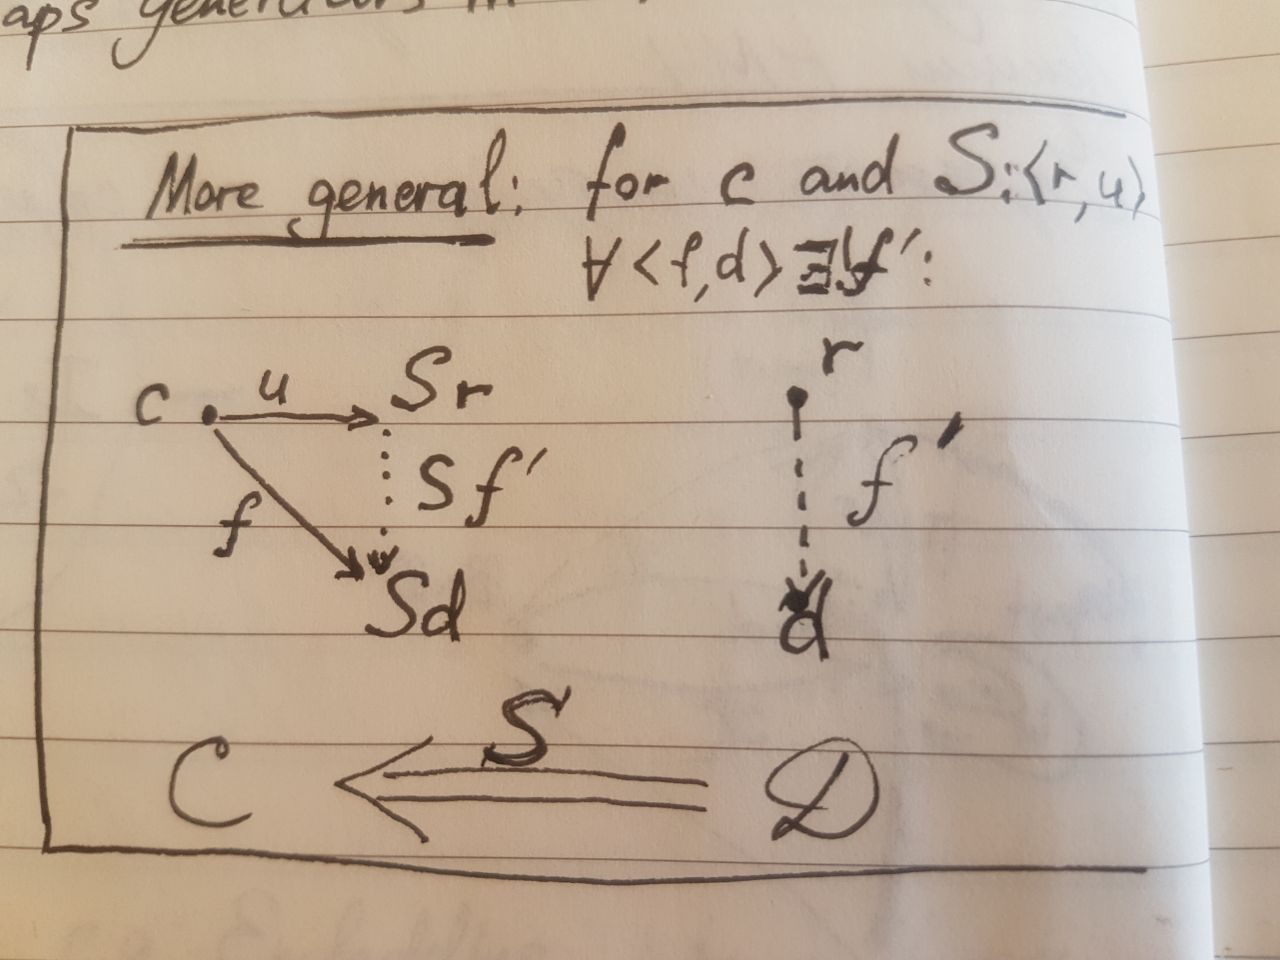 aps generators in
More general: for c and S: ⟨r, u⟩
∀ <f, d> ∃! f′:
c u Sr r
f Sf′ f′
Sd d
S
C D